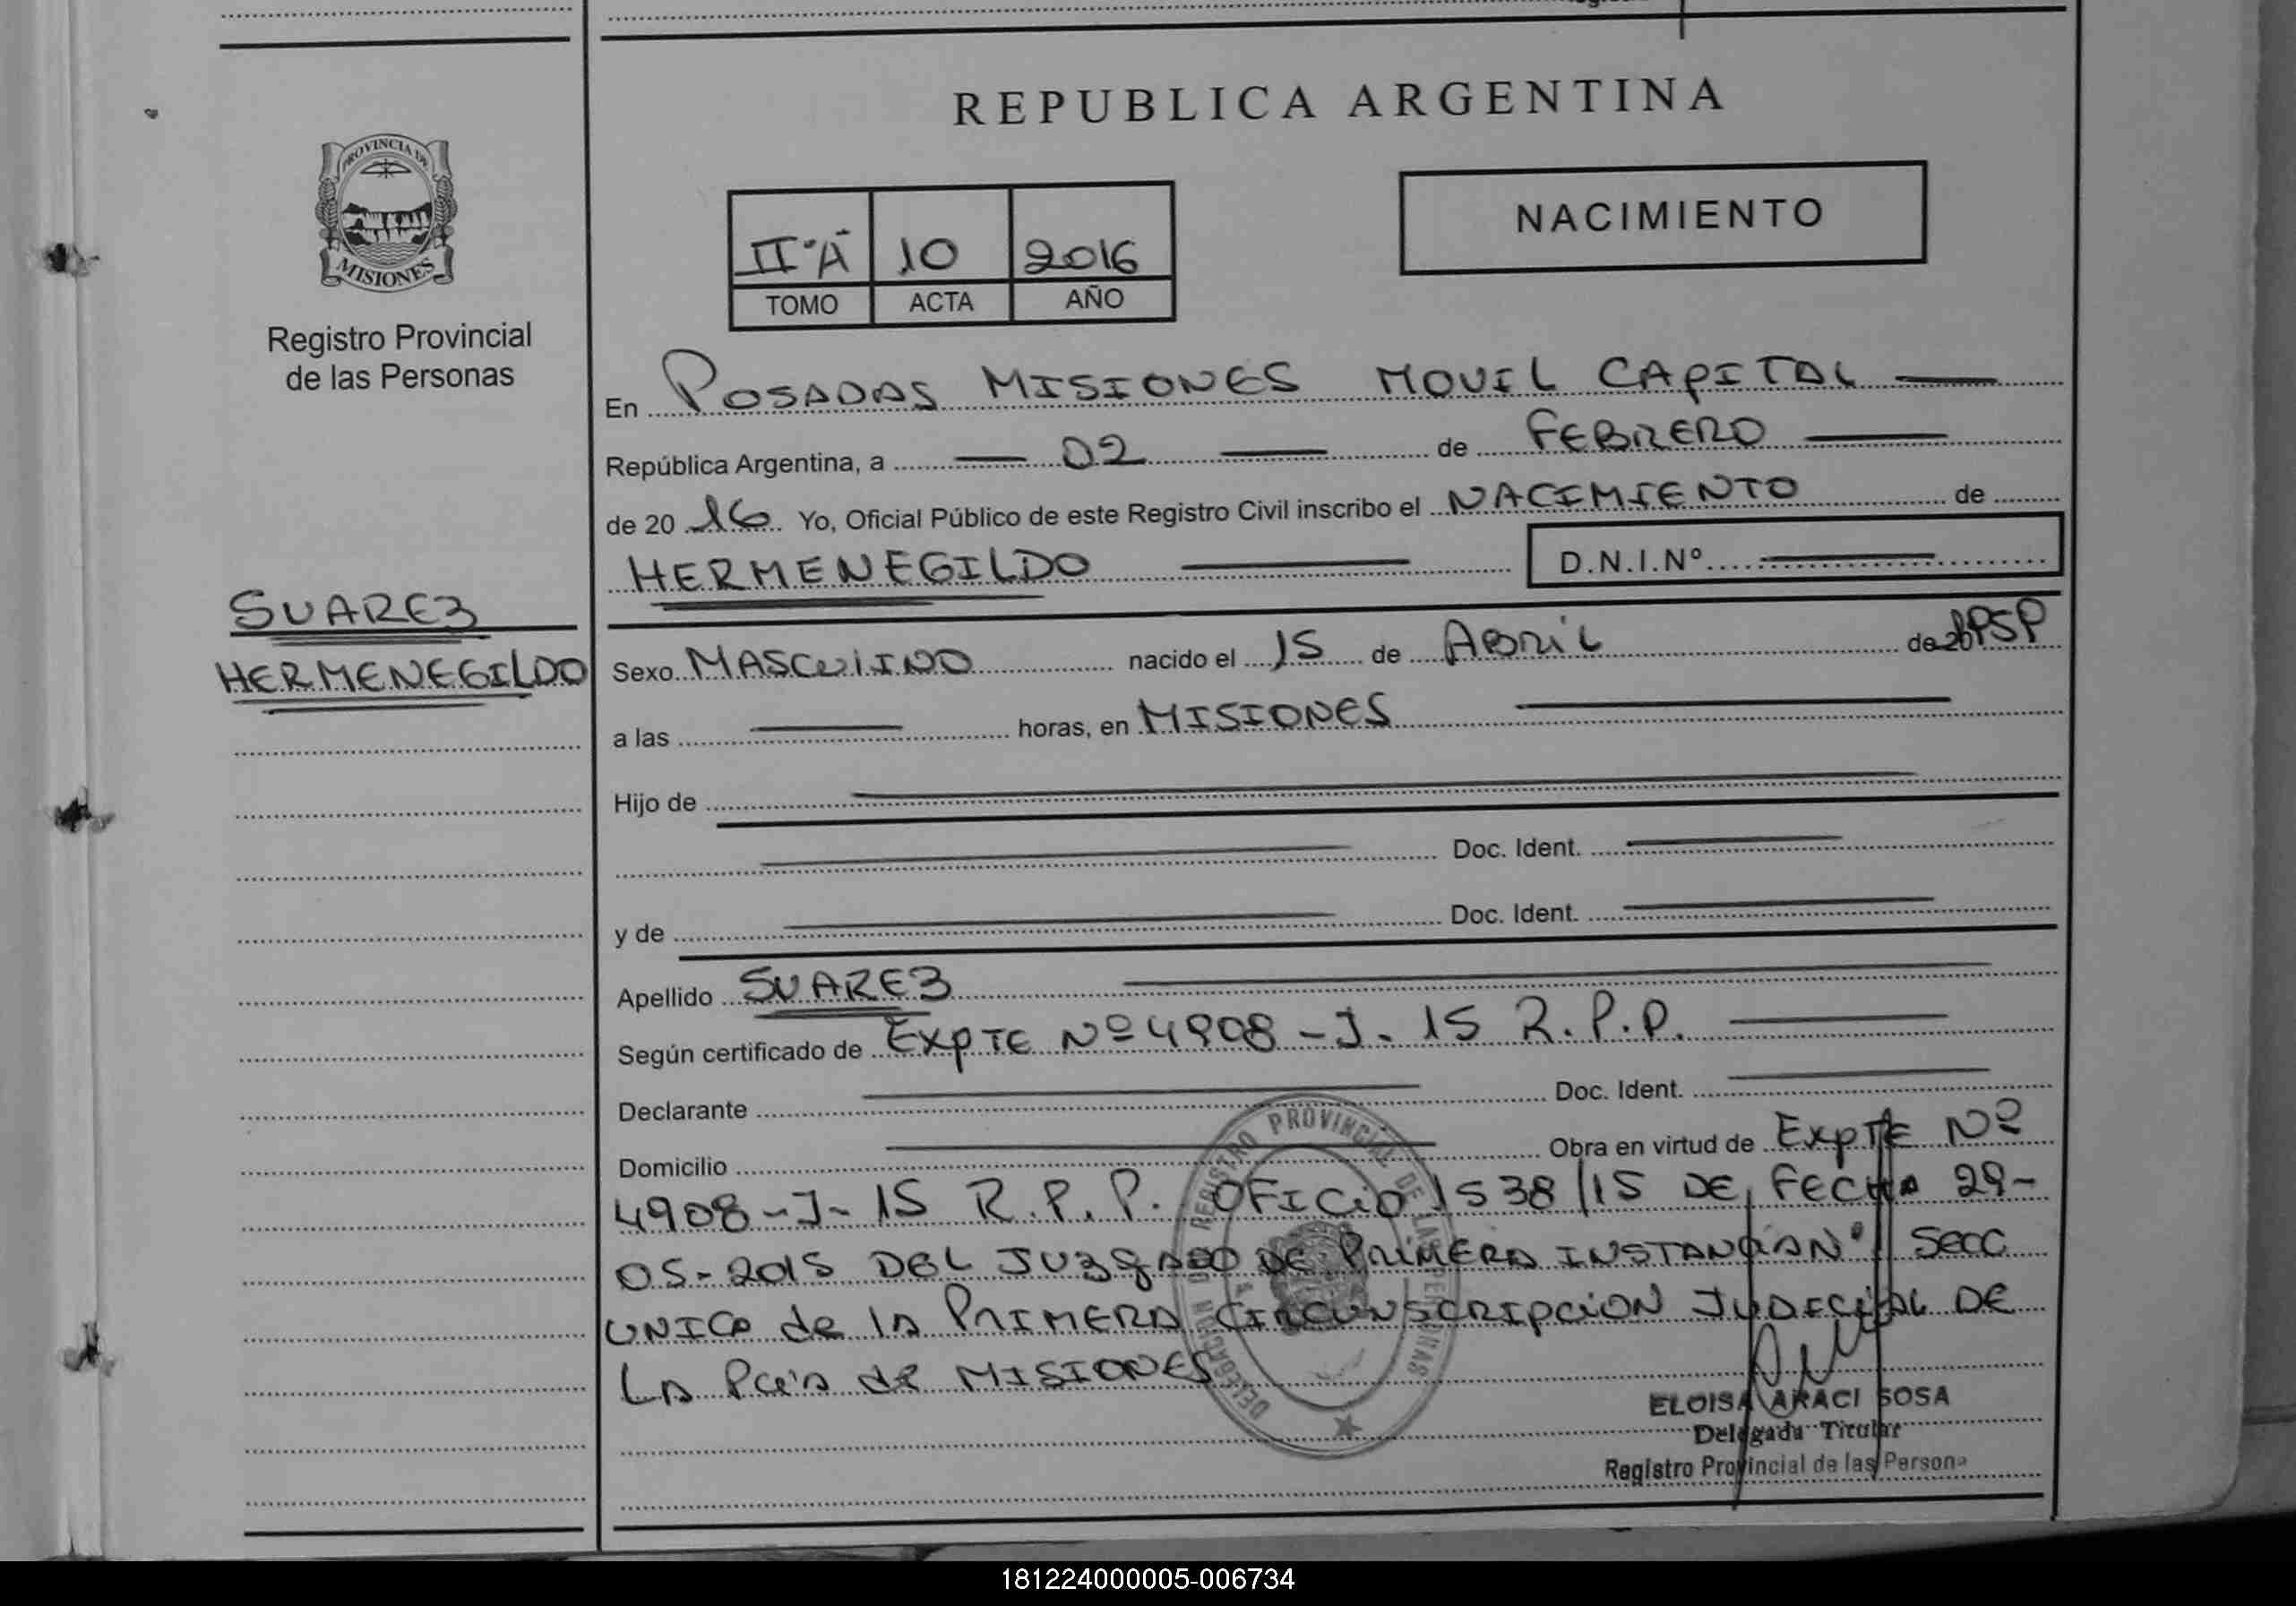 REPUBLICA ARGENTINA
PROVINCIA DE
MISIONES
Registro Provincial
de las Personas
II "A" 10 2016
TOMO ACTA AÑO
NACIMIENTO
En POSADAS MISIONES MOVIL CAPITAL
República Argentina, a 02 de FEBRERO
de 20 16 Yo, Oficial Público de este Registro Civil inscribo el NACIMIENTO de
HERMENEGILDO D.N.I.Nº
SUAREZ
HERMENEGILDO
Sexo MASCULINO nacido el 15 de ABRIL de
a las horas, en MISIONES
Hijo de
Doc. Ident.
y de Doc. Ident.
Apellido SUAREZ
Según certificado de EXPTE Nº 4908-J-15 R.P.P.
Declarante Doc. Ident.
Domicilio Obra en virtud de EXPTE Nº
4908-J-15 R.P.P. OFICIO 1538/15 DE FECHA 29-
05-2015 DEL JUZGADO DE PRIMERA INSTANCIA Nº 1 SECC
UNICA de la PRIMERA CIRCUNSCRIPCION JUDICIAL DE
LA Pcia de MISIONES
REGISTRO PROVINCIAL DE LAS PERSONAS
ELOISA ARACI SOSA
Delegada Titular
Registro Provincial de las Persona
181224000005-006734